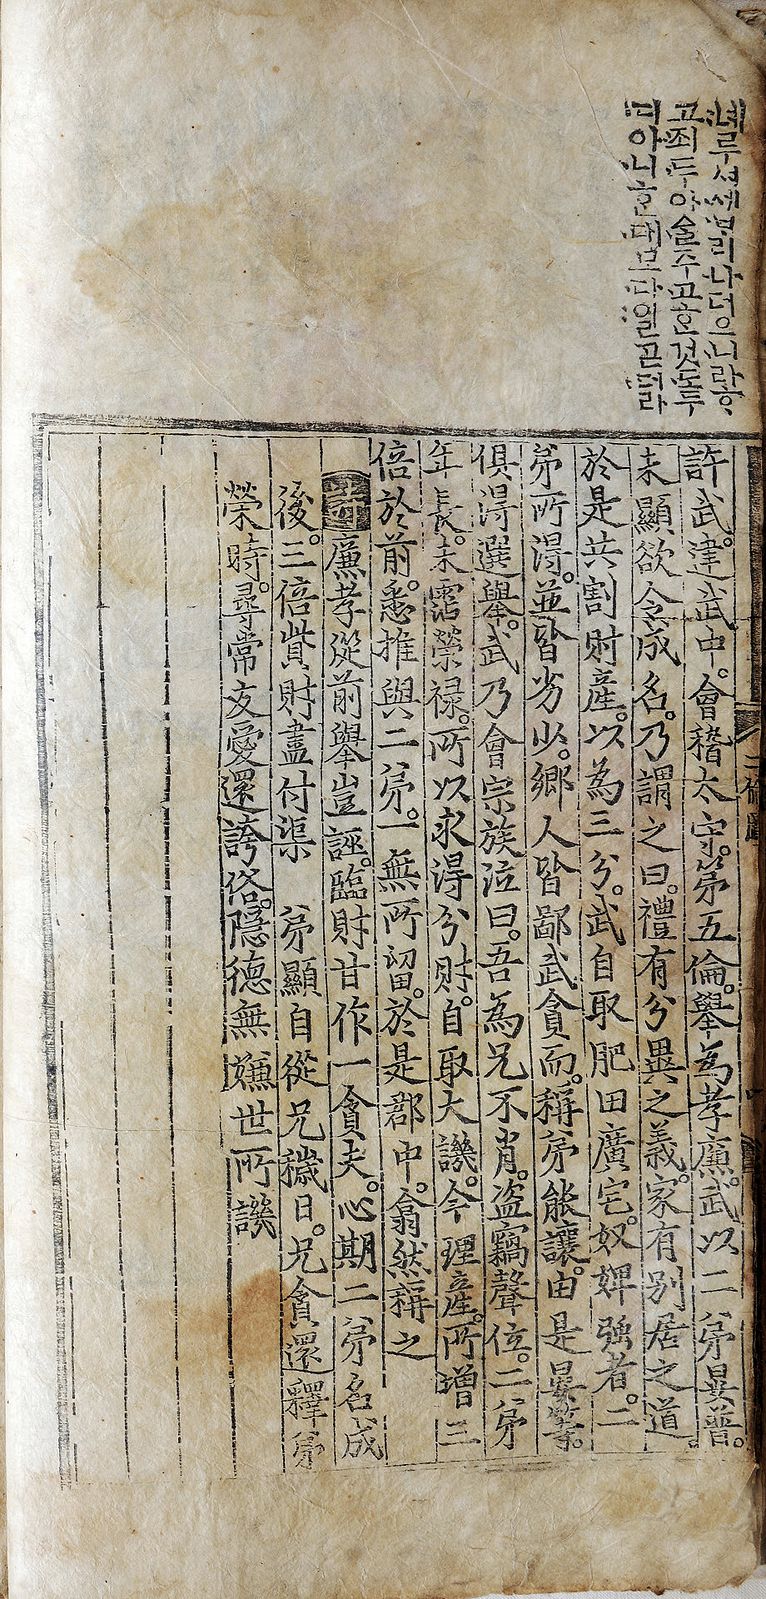 녜루셔세버리나더으니라ᄒᆞ
고죄두아ᅀᆞᆯ주고ᄒᆞᆫ것도두
디아니ᄒᆞᆫ대모다일ᄏᆞᆮ더라
許武。建武中。會稽太守。第五倫。擧爲孝廉。武以二弟晏普。
未顯欲令成名。乃謂之曰。禮有分異之義。家有別居之道
於是共割財產。以爲三分。武自取肥田廣宅。奴婢强者。二
弟所得。並皆劣少。鄕人皆鄙武貪而。稱弟能讓。由是晏等。
俱得選擧。武乃會宗族泣曰。吾爲兄不肖。盜竊聲位。二弟
年長。未霑榮祿。所以求得分財。自取大譏。今理產。所增三
倍於前。悉推與二弟。一無所留。於是郡中。翕然稱之
詩 廉孝從前擧豈誣。臨財甘作一貪夫。心期二弟名成
後。三倍貲財盡付渠 弟顯自從兄穢日。兄貪還釋弟
榮時。尋常友愛還誇俗。隱德無嫌世所譏
二倫圖